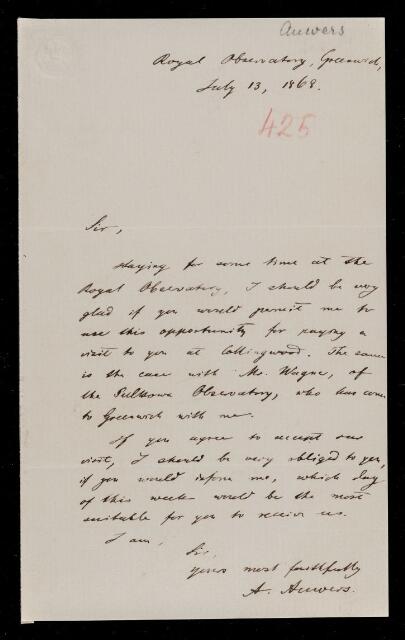 Auwers
Royal Observatory, Greenwich,
July 13, 1868.
425
Sir,
Staying for some time at the
Royal Observatory, I should be very
glad if you would permit me to
use this opportunity for paying a
visit to you at Collingwood. The same
is the case with Mr. Wagner, of
the Pulkowa Observatory, who has come
to Greenwich with me.
If you agree to accept our
visit, I should be very obliged to you,
if you would inform me, which day
of this week would be the most
suitable for you to receive us.
I am,
Sir,
yours most faithfully
A. Auwers.